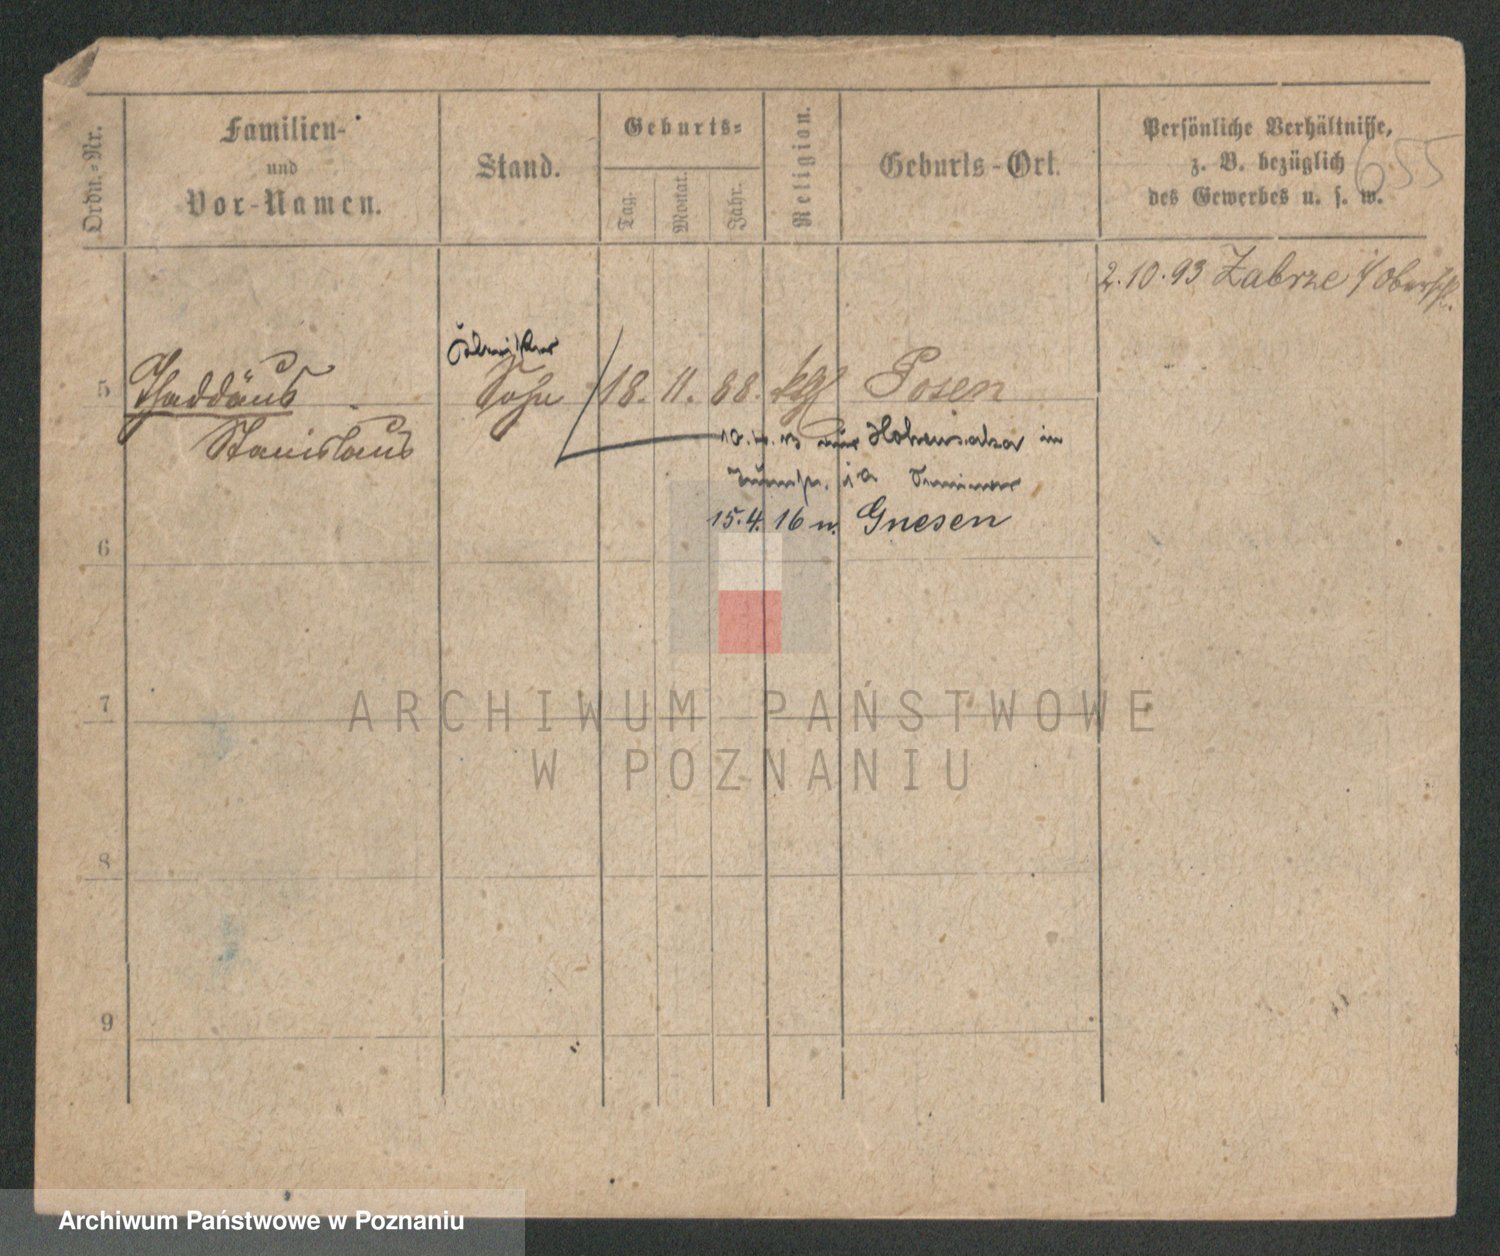 Ordn.-Nr.
Familien-
und
Vor-Namen.
Stand.
Geburts-
Tag.
Monat.
Jahr.
Religion.
Geburts-Ort.
Persönliche Verhältnisse,
z. B. bezüglich
des Gewerbes u. s. w.
655
2.10.93 Zabrze i/Oberschl.
5 Thaddäus Sohn 18. 11. 88. kath Posen
Stanislaus
Hohensalza in
Seminar
15.4.16 n. Gnesen
6
7
8
9
ARCHIWUM PAŃSTWOWE
W POZNANIU
Archiwum Państwowe w Poznaniu